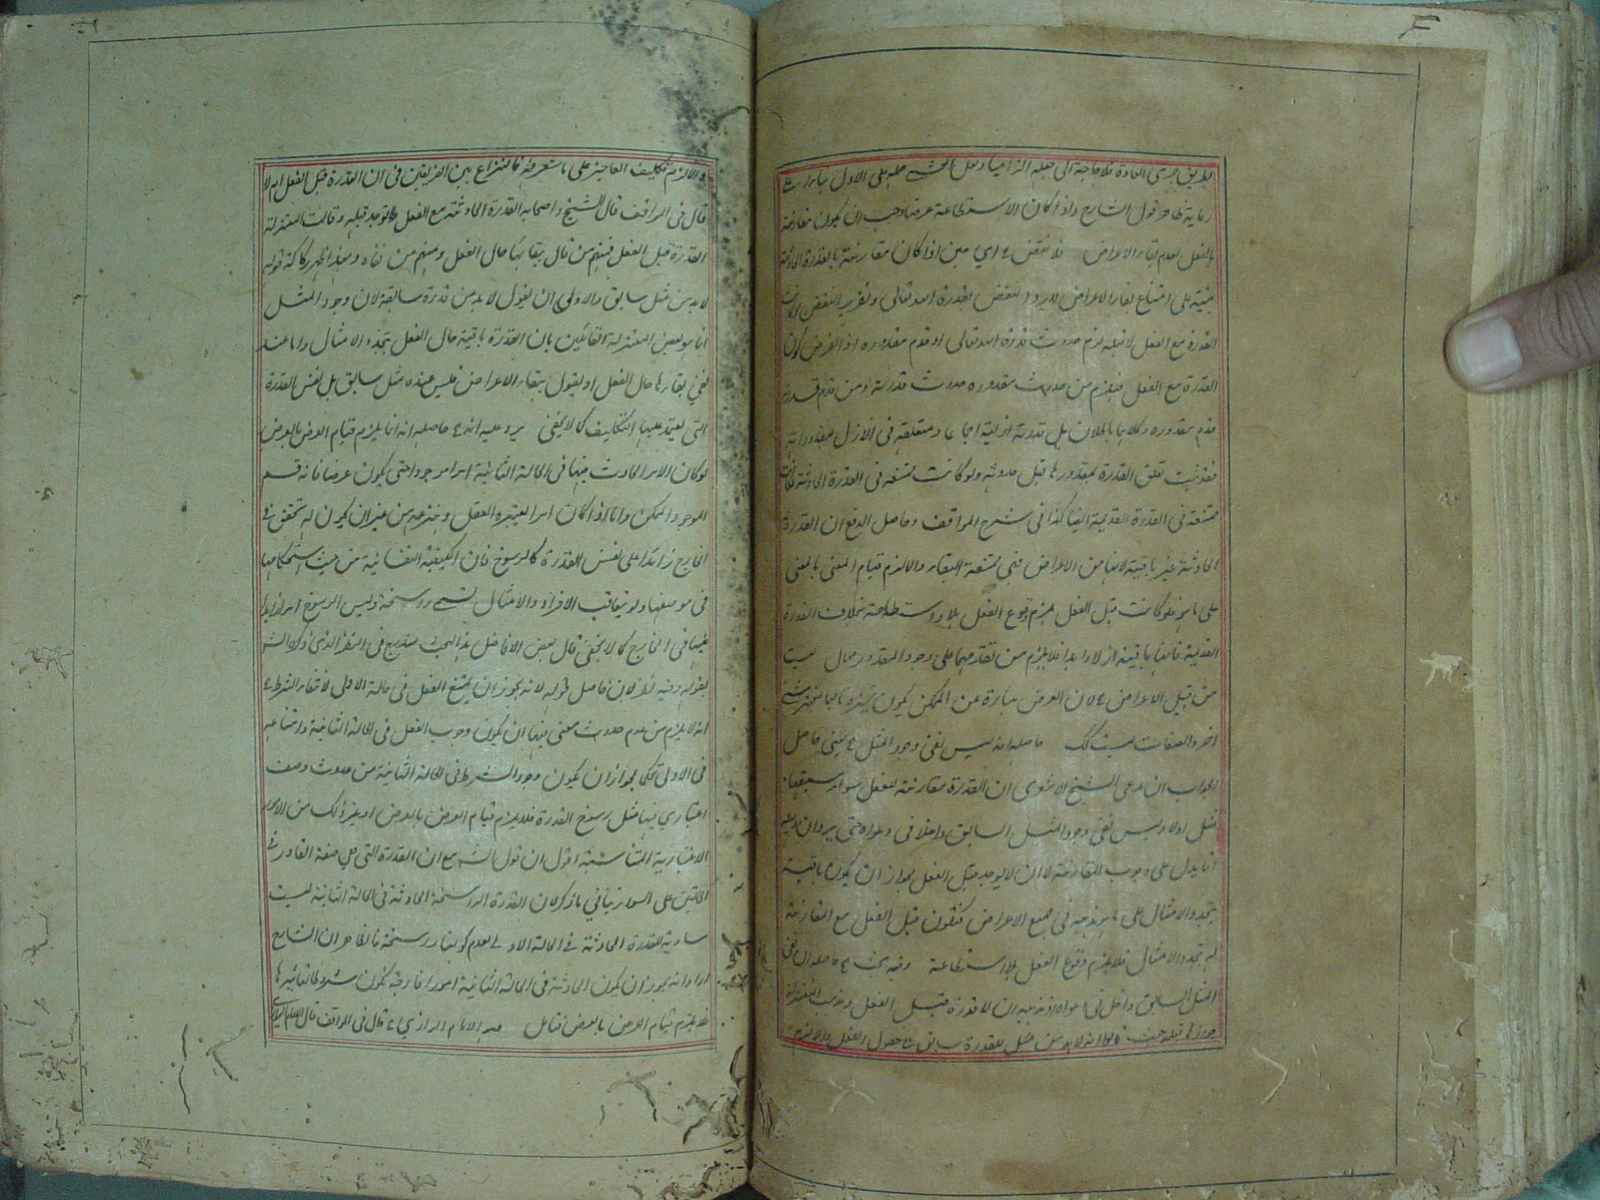 بطريق جرى العادة فلا حاجة الى
رعاية ظاهر قول الشارح واذا كان الاستطاعة عرضا وجب ان يكون مقارنة
بالفعل لعدم بقاء الاعراض فلا نقض
مبنية على امتناع بقاء الاعراض لا يرد النقض بقدرة الله تعالى وتقرير النقض لو كانت
القدرة مع الفعل لا قبله لزم حدوث قدرة الله تعالى او قدم مقدوره اذ الفرض كون
القدرة مع الفعل فيلزم من حدوث مقدوره حدوث قدرته ومن قدم قدرته
قدم مقدوره وكلاهما باطلان بل قدرته ازلية اجماعا ومتعلقة في الازل بمقدوراته
فقد ثبت تعلق القدرة بمقدورها قبل حدوثه ولو كانت ممتنعة في القدرة الحادثة لكانت
ممتنعة في القدرة القديمة ايضا كذا في شرح المواقف وحاصل الدفع ان القدرة
الحادثة غير باقية لانها من الاعراض فهي ممتنعة البقاء والا لزم قيام المعنى بالمعنى
على ما مر فلو كانت قبل الفعل لزم وقوع الفعل بلا استطاعة بخلاف القدرة
القديمة فانها باقية ازلا وابدا فلا يلزم من تقدمها على وجود المقدور محال ليست
من قبيل الاعراض لان العرض عبارة عن الممكن يكون تحيزه تابعا لتحيز شيء
اخر والصفات ليست كذلك حاصله انه ليس نفي وجود المثل يعني حاصل
الجواب ان مدعى الشيخ الاشعري ان القدرة مقارنة للفعل سواء سبقها
مثل اولا وليس نفي وجود المثل السابق داخلا في دعواه حتى يرد ان دليله
انما يدل على وجوب المقارنة لا ان لا يوجد قبل الفعل لجواز ان يكون باقية
بتجدد الامثال على ما هو مذهبه في جميع الاعراض فتكون قبل الفعل مع المقارنة
له بتجدد الامثال فلا يلزم وقوع الفعل بلا استطاعة وفيه بحث حاصله ان نفي
المثل السابق داخل في دعواه اذ مذهبه ان لا قدرة قبل الفعل ومذهب المعتزلة
جوازها قبله حيث قالوا انه لا بد من مثل للقدرة سابق حصول الفعل والا لزم
والا لزم تكليف العاجز على ما ستعرفه فالنزاع بين الفريقين في ان القدرة قبل الفعل ام لا
قال في المواقف قال الشيخ واصحابه القدرة الحادثة مع الفعل ولا توجد قبله وقالت المعتزلة
القدرة قبل الفعل فمنهم من قال ببقائها حال الفعل ومنهم من نفاه وبهذا ظهر ركاكة قوله
لا بد من مثل سابق والاولى ان يقول لا بد من قدرة سابقة لان وجود المثل
انما هو بعض المعتزلة القائلين بان القدرة باقية حال الفعل بتجدد الامثال واما عند
نفي بقائها حال الفعل او يقول ببقاء الاعراض فليس عنده مثل سابق بل نفس القدرة
التي يعتمد عليها التكليف كما لا يخفى يرد عليه انه حاصله انه انما يلزم قيام العرض بالعرض
لو كان الامر الحادث فيها في الحالة الثانية امرا موجودا حتى يكون عرضا فانه قسم
الموجود الممكن واما اذا كان امرا يعتبره العقل وينتزعه من غير ان يكون له تحقق في
الخارج زائدا على نفس القدرة كالرسوخ فان الكيفية النفسانية من حيث استحكامها
في موضعها ولو بتعاقب الافراد والامثال تسمى راسخة وليس الرسوخ امرا زائدا
عليها في الخارج كما لا يخفى قال بعض الافاضل هذا البحث مندرج في النظر الذي ذكره الش
بقوله وفيه نظر لان حاصل قوله لانه يجوز ان يمتنع الفعل في حالة الاولى لانتفاء الشرط
انه لا يلزم من عدم حدوث معنى فيها ان يكون وجوب الفعل في الحالة الثانية وامتناعه
في الاولى تحكما لجواز ان يكون وجود الشرط في الحالة الثانية من حدوث وصف
اعتباري فيها مثل رسوخ القدرة فلا يلزم قيام العرض بالعرض او غير ذلك من الامور
الاعتبارية المتناسبة اقول ان قول الش مع ان القدرة التي هي صفة القادر في
الحالتين على السواء ينافي ما ذكر لان القدرة الراسخة الحادثة في الحالة الثانية ليست
مساوية للقدرة الحادثة في الحالة الاولى لعدم كونها راسخة فالظاهر ان الشارح
اراد انه يجوز ان يكون الحادثة في الحالة الثانية امورا خارجة يكون شروطا لتاثيرها
فلا يلزم قيام العرض بالعرض تامل هو الامام الرازي قال في المواقف قال الامام الرازي